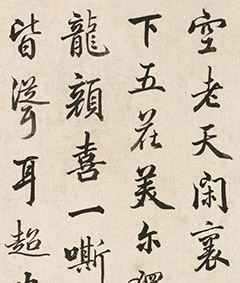 空老天閑裏
下五花美尔
龍顏喜一嘶
皆聳耳超